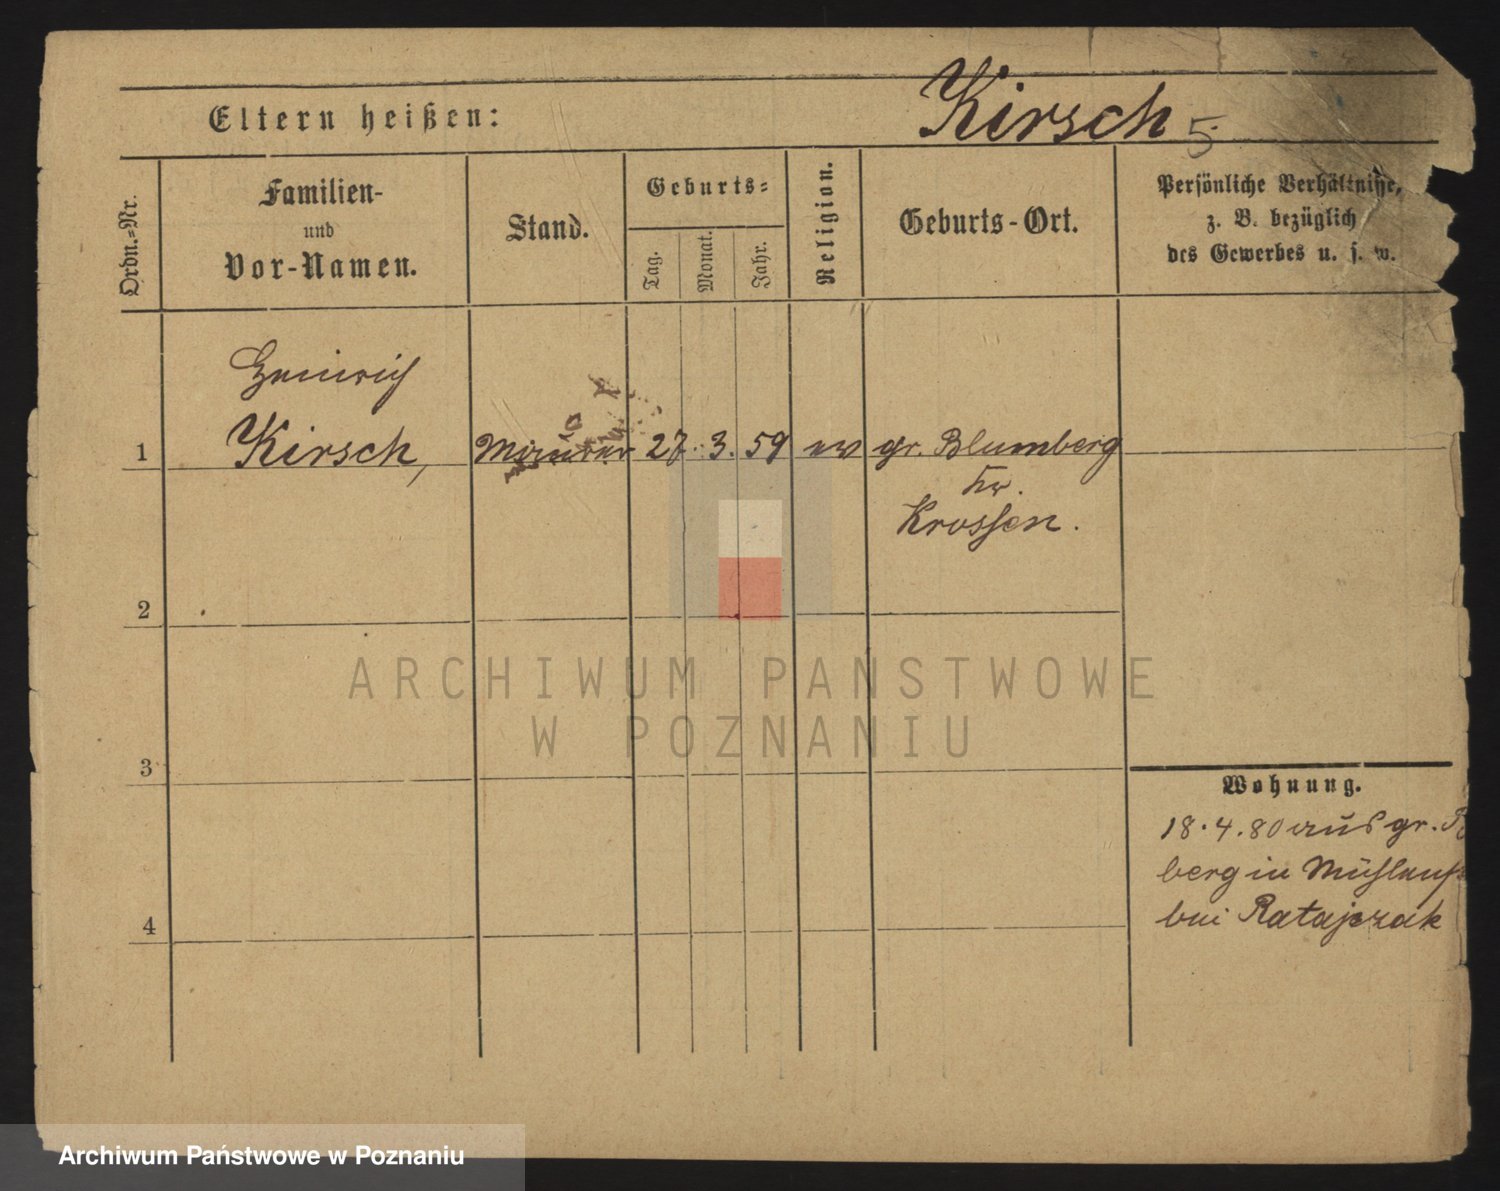 Eltern heißen: Kirsch 5.
Ordn.-Nr.
Familien-
und
Vor-Namen.
Stand.
Geburts-
Tag.
Monat.
Jahr.
Religion.
Geburts-Ort.
Persönliche Verhältnisse,
z. B. bezüglich
des Gewerbes u. s. w.
Heinrich
1 Kirsch, Maurer 27. 3. 59 ev gr. Blumberg
Kr.
Krossen.
2
3
4
Wohnung.
18.4.80 aus gr.
berg in Mühlenst
bei Ratajczak
ARCHIWUM PAŃSTWOWE
W POZNANIU
Archiwum Państwowe w Poznaniu